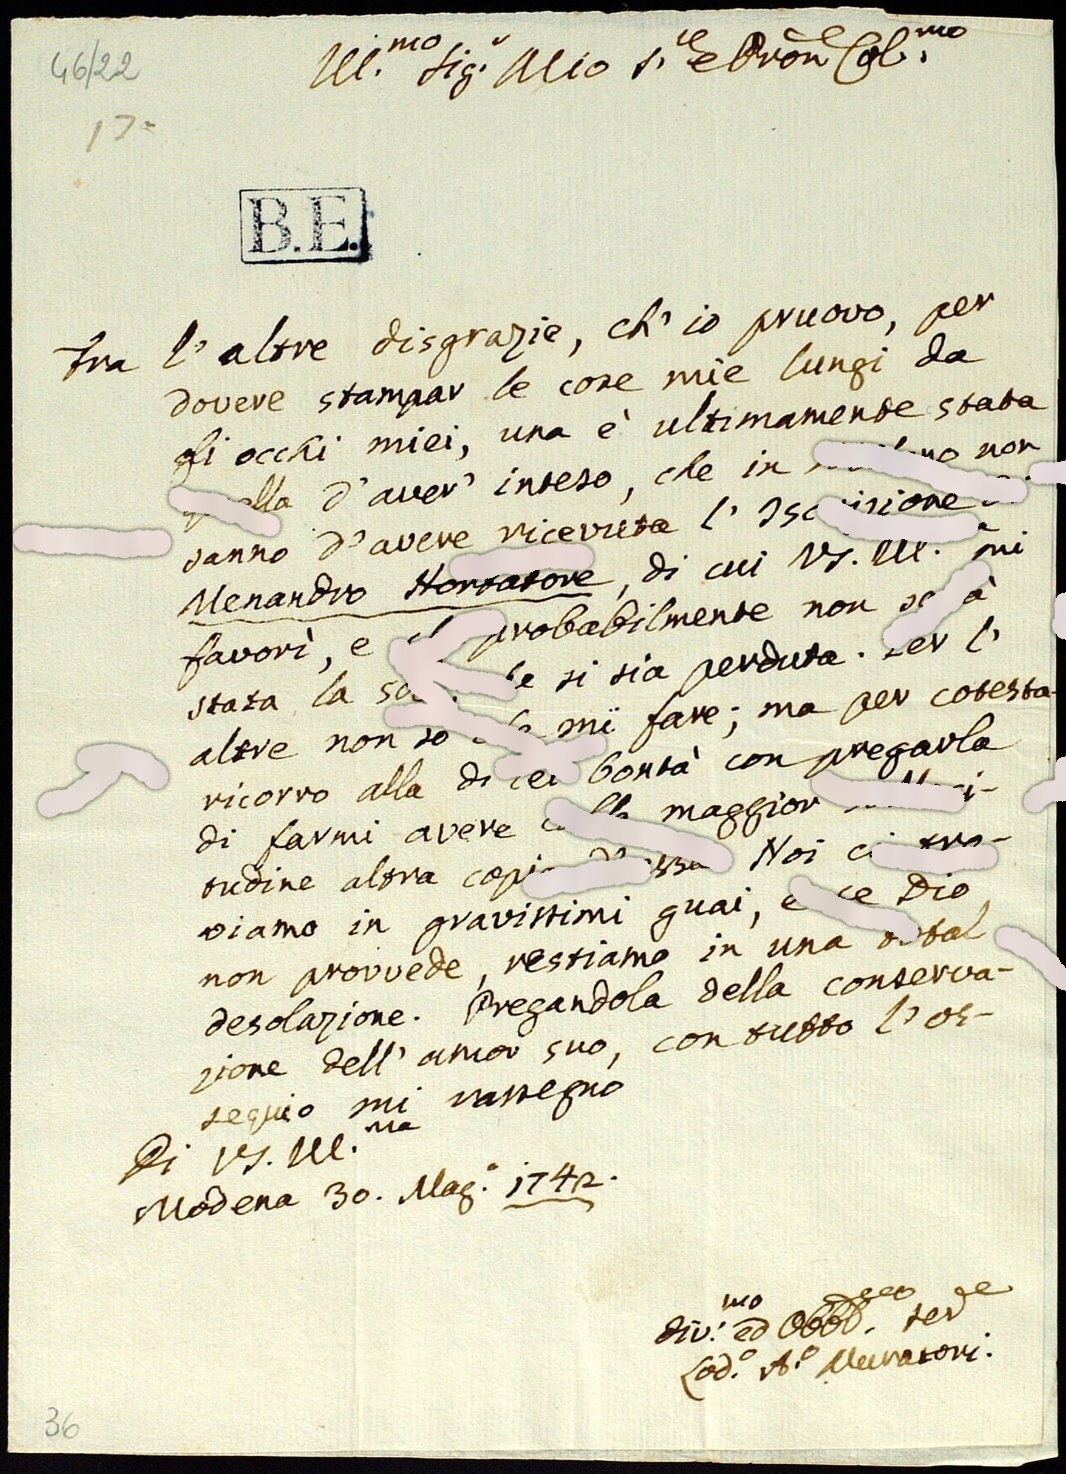 46/22
17
Ill.mo Sig.r Mio S.re e Pron Col.mo
B.E.
Tra l' altre disgrazie, ch' io pruovo, per
dovere stampar le cose mie lungi da
gli occhi miei, una è ultimamente stata
d' aver' inteso, che in non
sanno d' avere ricevuta l'
Menandro Hortatore, di cui VS. Ill. mi
favorì, e probabilmente non
stata la si sia perduta. Per l'
altre non so mi fare; ma per cotesta
ricorro alla di lei bontà con pregarla
di farmi avere maggior
tudine altra copia Noi ci tro-
viamo in gravissimi guai, e se Dio
non provvede, restiamo in una total
desolazione. Pregandola della conserva-
zione dell' amor suo, con tutto l' os-
sequio mi rassegno
Di VS. Ill.ma
Modena 30. Mag.o 1742.
div.mo ed Obb. ser.e
Lod.o A.o Muratori.
36